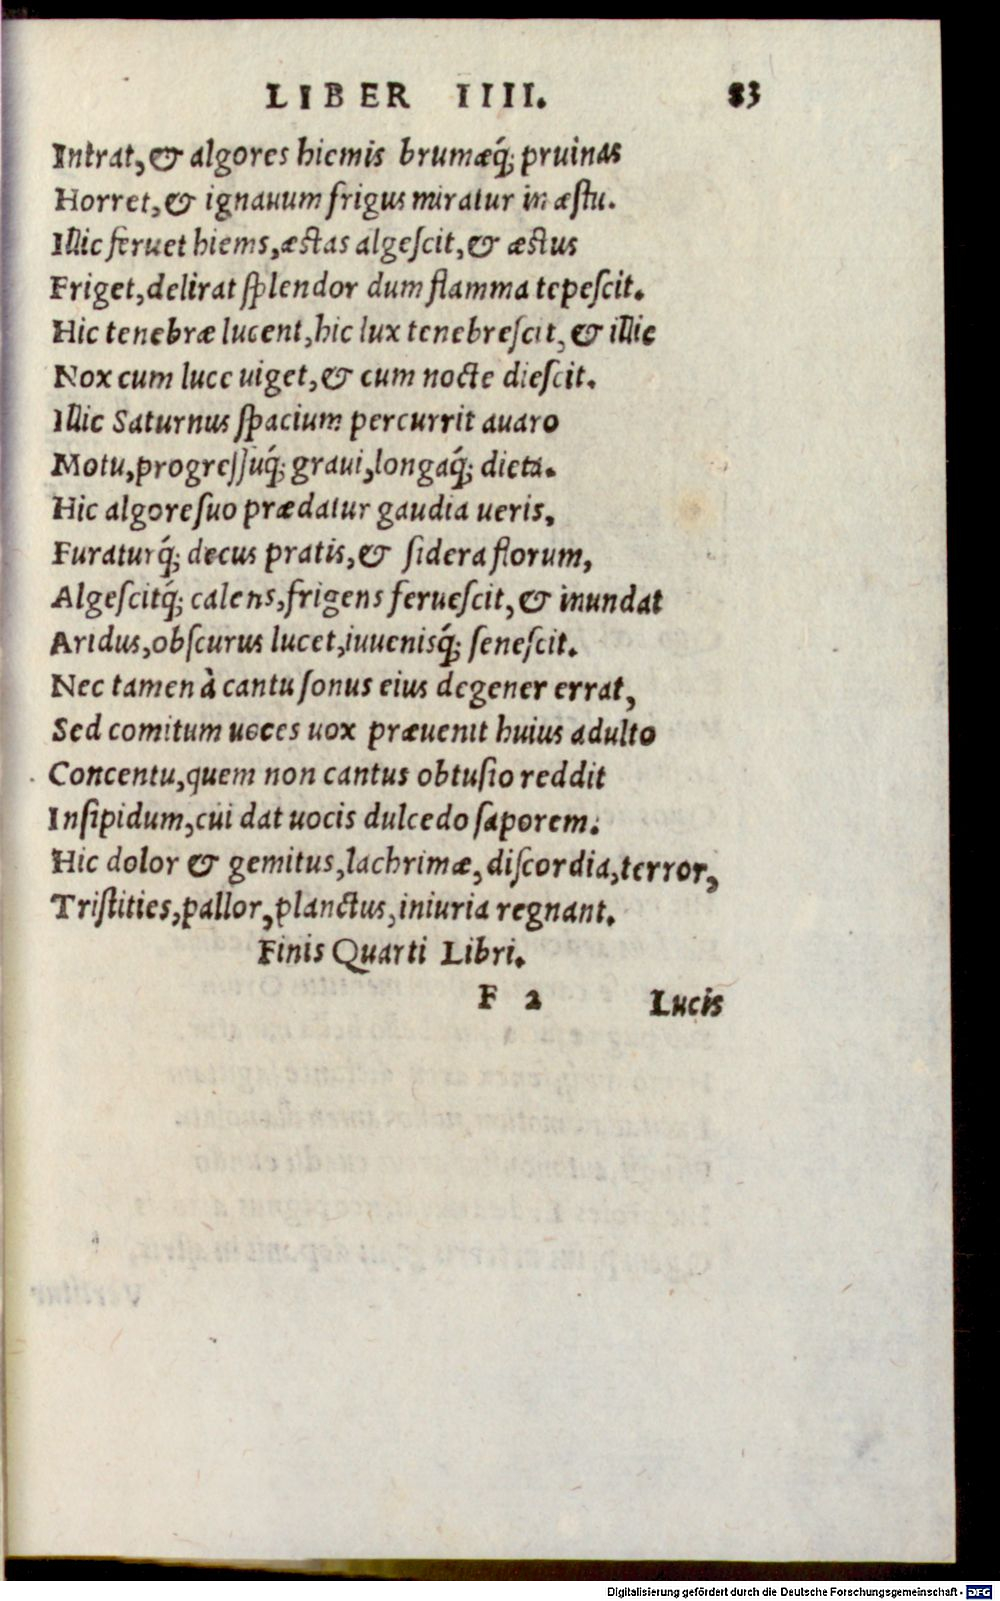 LIBER IIII. 83
Intrat, & algores hiemis brumæq́; pruinas
Horret, & ignauum frigus miratur in æstu.
Illic feruet hiems, æstas algescit, & æstus
Friget, delirat splendor dum flamma tepescit.
Hic tenebræ lucent, hic lux tenebrescit, & illic
Nox cum luce uiget, & cum nocte diescit.
Illic Saturnus spacium percurrit auaro
Motu, progressuq́; graui, longaq́; dieta.
Hic algore suo prædatur gaudia ueris,
Furaturq́; decus pratis, & sidera florum,
Algescitq́; calens, frigens feruescit, & inundat
Aridus, obscurus lucet, iuuenisq́; senescit.
Nec tamen à cantu sonus eius degener errat,
Sed comitum uoces uox præuenit huius adulto
Concentu, quem non cantus obtusio reddit
Insipidum, cui dat uocis dulcedo saporem.
Hic dolor & gemitus, lachrimæ, discordia, terror,
Tristities, pallor, planctus, iniuria regnant.
Finis Quarti Libri.
F 2 Lucis
Digitalisierung gefördert durch die Deutsche Forschungsgemeinschaft - DFG